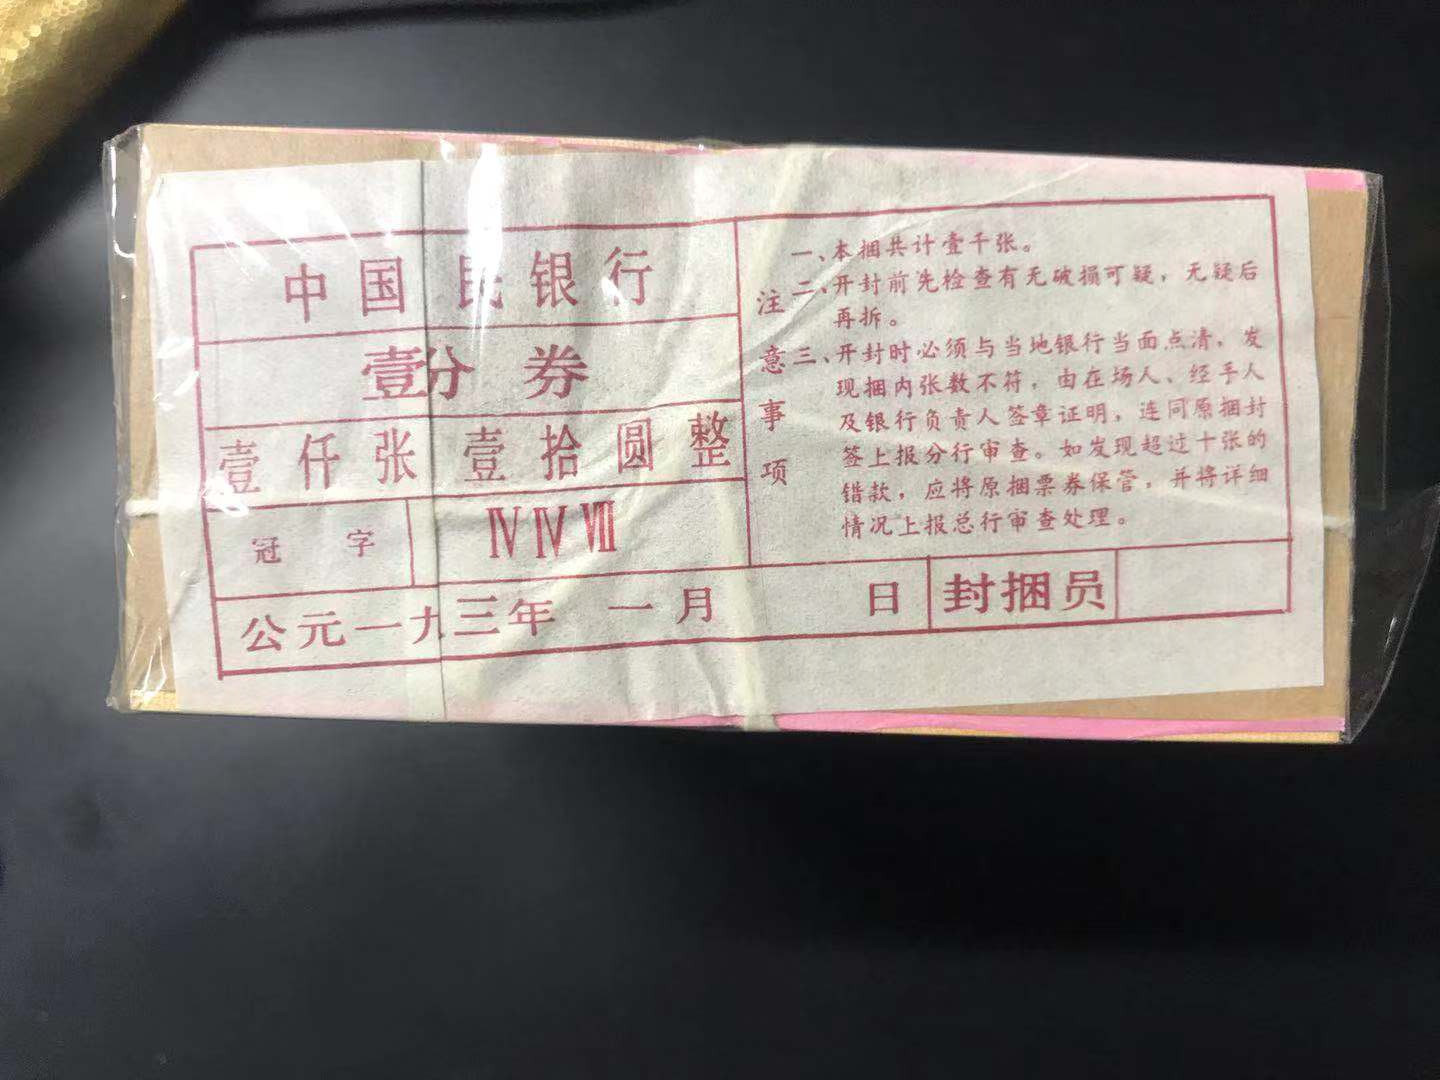 中国 民银行
壹分券
壹仟张 壹拾圆整
冠字 ⅣⅣⅦ
公元一九 三年 一月 日
封捆员
注意事项
一、本捆共计壹千张。
二、开封前先检查有无破损可疑，无疑后
再拆。
三、开封时必须与当地银行当面点清，发
现捆内张数不符，由在场人、经手人
及银行负责人签章证明，连同原捆封
签上报分行审查。如发现超过十张的
错款，应将原捆票券保管，并将详细
情况上报总行审查处理。